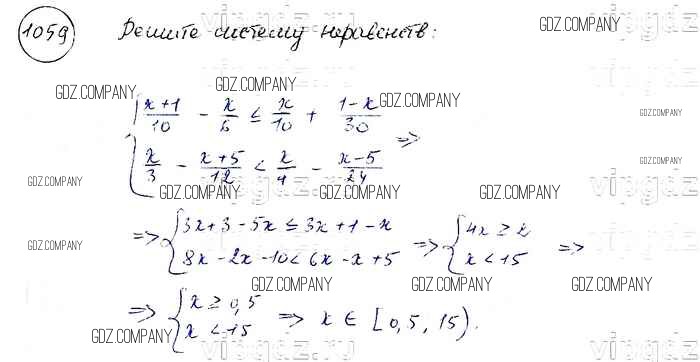 1059 Решите систему неравенств:
GDZ.COMPANY
vipgdz.ru
GDZ.COMPANY GDZ.COMPANY GDZ.COMPANY
{ (x+1)/10 - x/6 ≤ x/10 + (1-x)/30
{ x/3 - (x+5)/12 < x/4 - (x-5)/24 =>
GDZ.COMPANY GDZ.COMPANY GDZ.COMPANY GDZ.COMPANY GDZ.COMPANY GDZ.COMPANY
=> { 3x+3-5x ≤ 3x+1-x
{ 8x-2x-10 < 6x-x+5 => { 4x ≥ 2
{ x < 15 =>
GDZ.COMPANY GDZ.COMPANY GDZ.COMPANY GDZ.COMPANY
=> { x ≥ 0,5
{ x < 15 => x ∈ [0,5, 15).
GDZ.COMPANY GDZ.COMPANY GDZ.COMPANY
vipgdz.ru